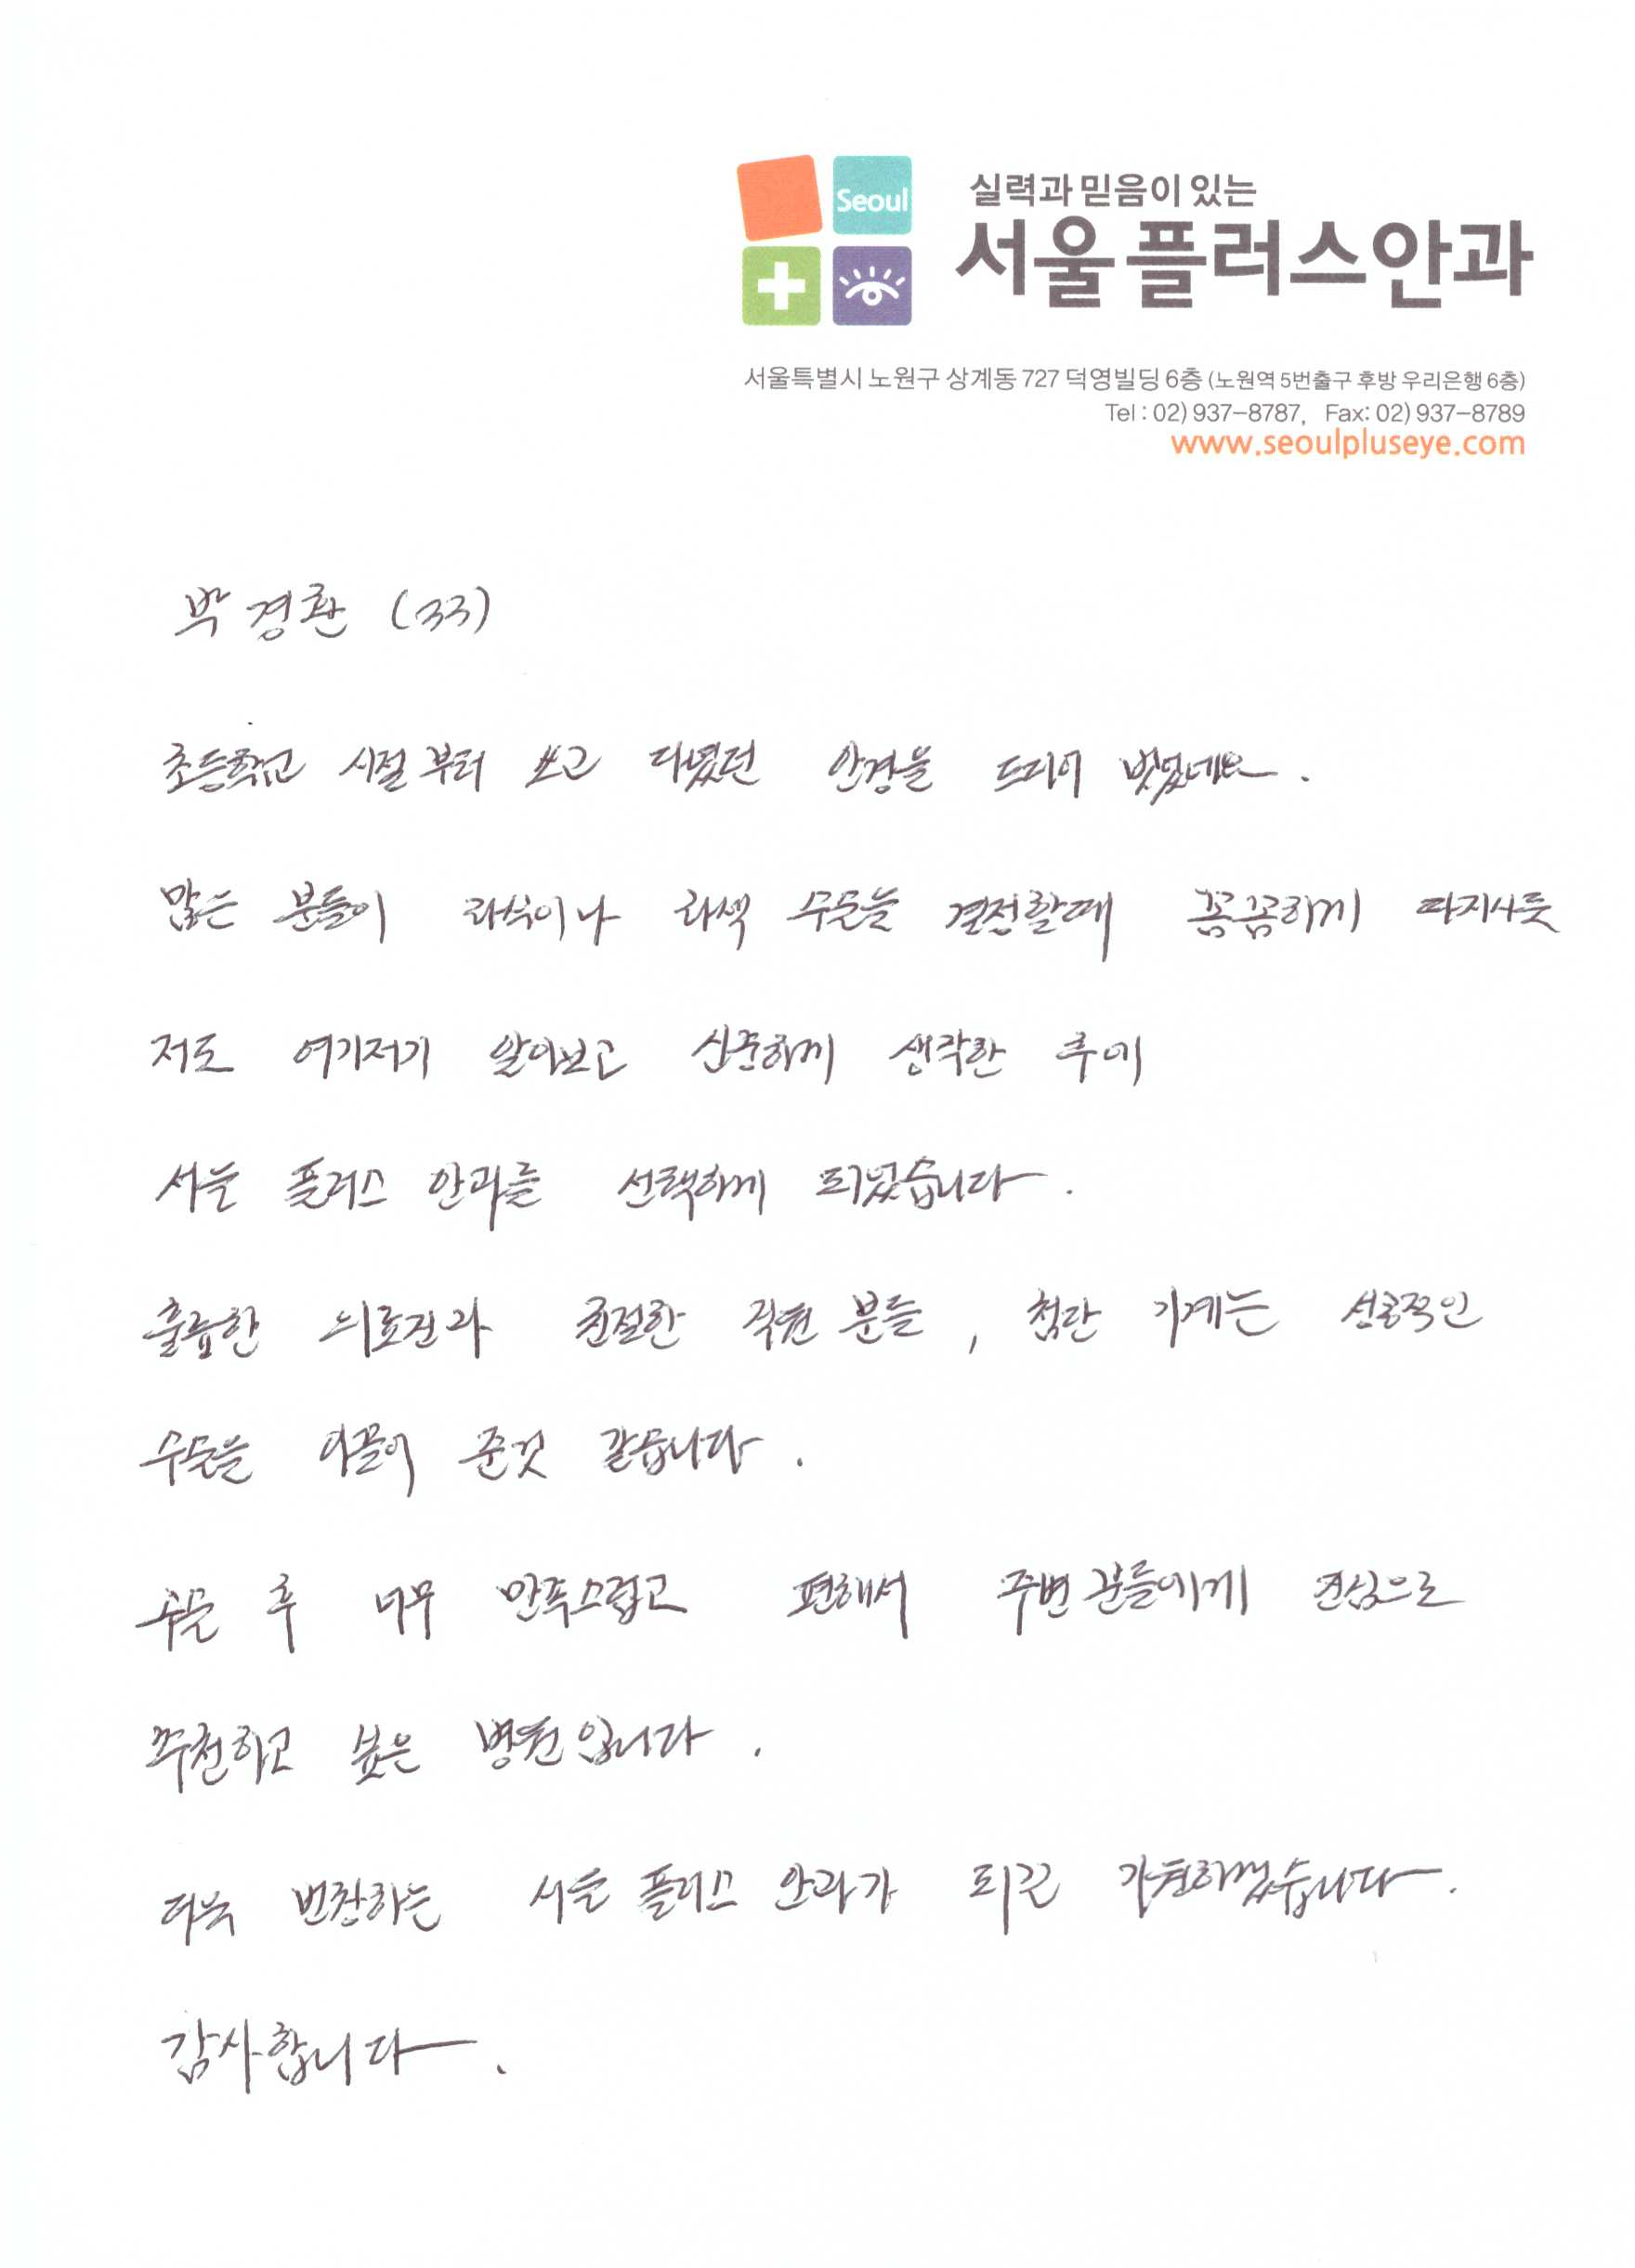 Seoul
실력과 믿음이 있는
서울플러스안과
서울특별시 노원구 상계동 727 덕영빌딩 6층 (노원역 5번출구 후방 우리은행 6층)
Tel : 02) 937-8787, Fax: 02) 937-8789
www.seoulpluseye.com
박경환 (33)
초등학교 시절부터 쓰고 다녔던 안경을 드디어 벗었네요.
많은 분들이 라식이나 라섹 수술을 결정할때 꼼꼼하게 따지시듯
저도 여기저기 알아보고 신중하게 생각한 후에
서울 플러스 안과를 선택하게 되었습니다.
훌륭한 의료진과 친절한 직원분들, 첨단 기계는 성공적인
수술을 이끌어 준것 같습니다.
수술 후 너무 만족스럽고 편해서 주변분들에게 진심으로
추천하고 싶은 병원입니다.
더욱 번창하는 서울 플러스 안과가 되길 기원하겠습니다.
감사합니다.